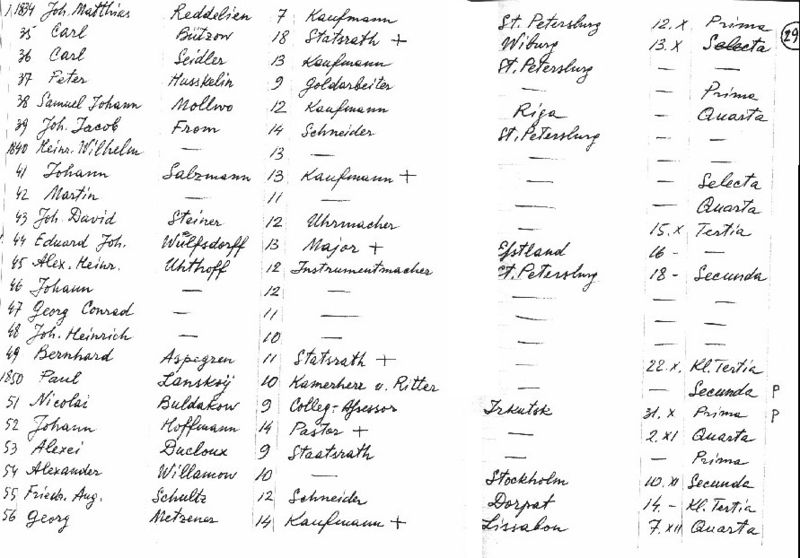 1834 Joh. Matthias Reddelien 7 Kaufmann St. Petersburg 12.X Prima 29
35 Carl Bützow 18 Statsrath + Wiburg 13.X Selecta
36 Carl Seidler 13 Kaufmann St. Petersburg — —
37 Peter Husskelin 9 Goldarbeiter — — Prima
38 Samuel Johann Mollwo 12 Kaufmann Riga — Quarta
39 Joh. Jacob From 14 Schneider St. Petersburg — —
1840 Heinr. Wilhelm — 13 — — — —
41 Johann Salzmann 13 Kaufmann + — — Selecta
42 Martin — 11 — — — Quarta
43 Joh. David Steiner 12 Uhrmacher — 15.X Tertia
44 Eduard Joh. Wulfsdorff 13 Major + Estland 16 - —
45 Alex. Heinr. Uhthoff 12 Instrumentmacher St. Petersburg 18 - Secunda
46 Johann — 12 — — — —
47 Georg Conrad — 11 — — — —
48 Joh. Heinrich — 10 — — — —
49 Bernhard Aspegren 11 Statsrath + — 22.X. Kl. Tertia
1850 Paul Lanskoÿ 10 Kamerherr v. Ritter — — Secunda P
51 Nicolai Buldakow 9 Colleg.-Assessor Irkutsk 31.X Prima P
52 Johann Hoffmann 14 Pastor + — 2.XI Quarta
53 Alexei Ducloux 9 Staatsrath — — Prima
54 Alexander Willamow 10 — Stockholm 10.XI Secunda
55 Friedr. Aug. Schultz 12 Schneider Dorpat 14. - Kl. Tertia
56 Georg Metzener 14 Kaufmann + Lissabon 7.XII Quarta